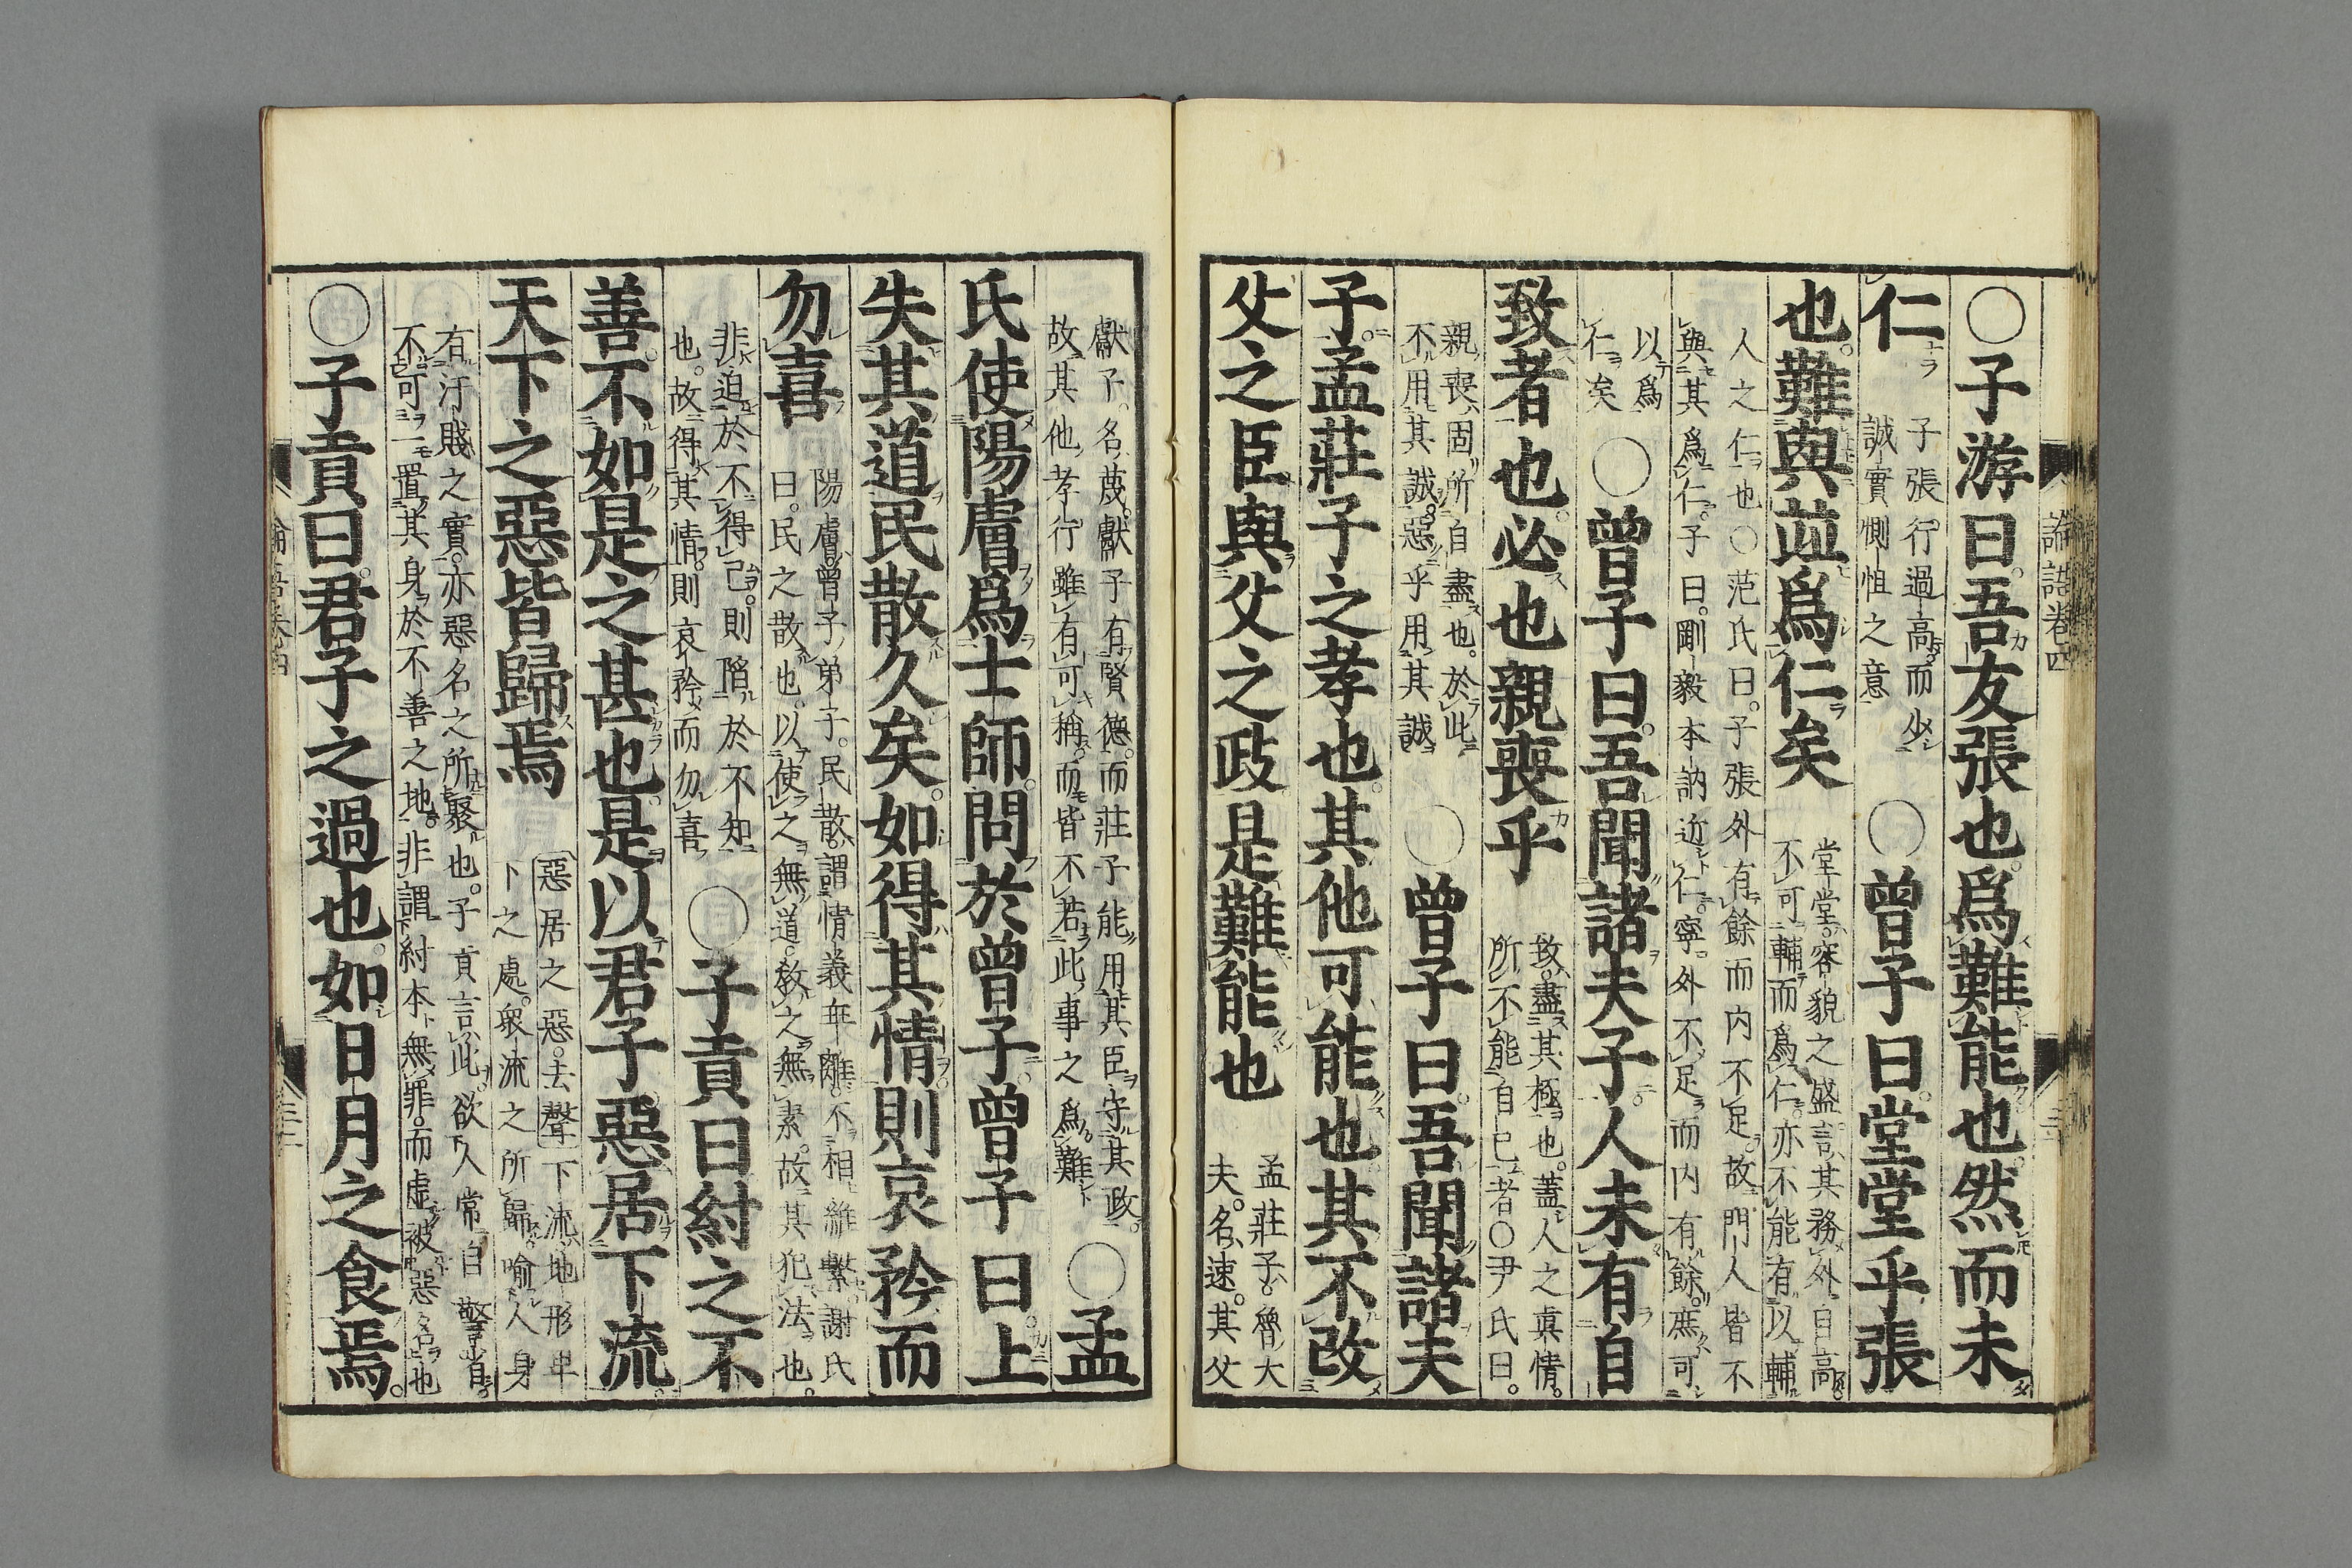 ○子游曰吾友張也爲難能也然而未
仁
子張行過高而少
誠實惻怛之意
○曾子曰堂堂乎張
也難與並爲仁矣
堂堂容貌之盛言其務外自高
不可輔而爲仁亦不能有以輔
人之仁也○范氏曰子張外有餘而内不足故門人皆不
與其爲仁子曰剛毅木訥近仁寧外不足而内有餘庶可
以爲
仁矣
○曾子曰吾聞諸夫子人未有自
致者也必也親喪乎
致盡其極也蓋人之眞情
所不能自已者○尹氏曰
親喪固所自盡也於此
不用其誠惡乎用其誠
○曾子曰吾聞諸夫
子孟莊子之孝也其他可能也其不改
父之臣與父之政是難能也
孟莊子魯大
夫名速其父
獻子名蔑獻子有賢德而莊子能用其臣守其政
故其他孝行雖有可稱而皆不若此事之爲難
○孟
氏使陽膚爲士師問於曾子曾子曰上
失其道民散久矣如得其情則哀矜而
勿喜
陽膚曾子弟子民散謂情義乖離不相維繫謝氏
曰民之散也以使之無道敎之無素故其犯法也
非迫於不得已則陷於不知
也故得其情則哀矜而勿喜
○子貢曰紂之不
善不如是之甚也是以君子惡居下流
天下之惡皆歸焉
惡居之惡去聲下流地形卑
下之處衆流之所歸喩人身
有汙賤之實亦惡名之所聚也子貢言此欲人常自警省
不可一置其身於不善之地非謂紂本無罪而虛被惡名也
○子貢曰君子之過也如日月之食焉
論語卷四